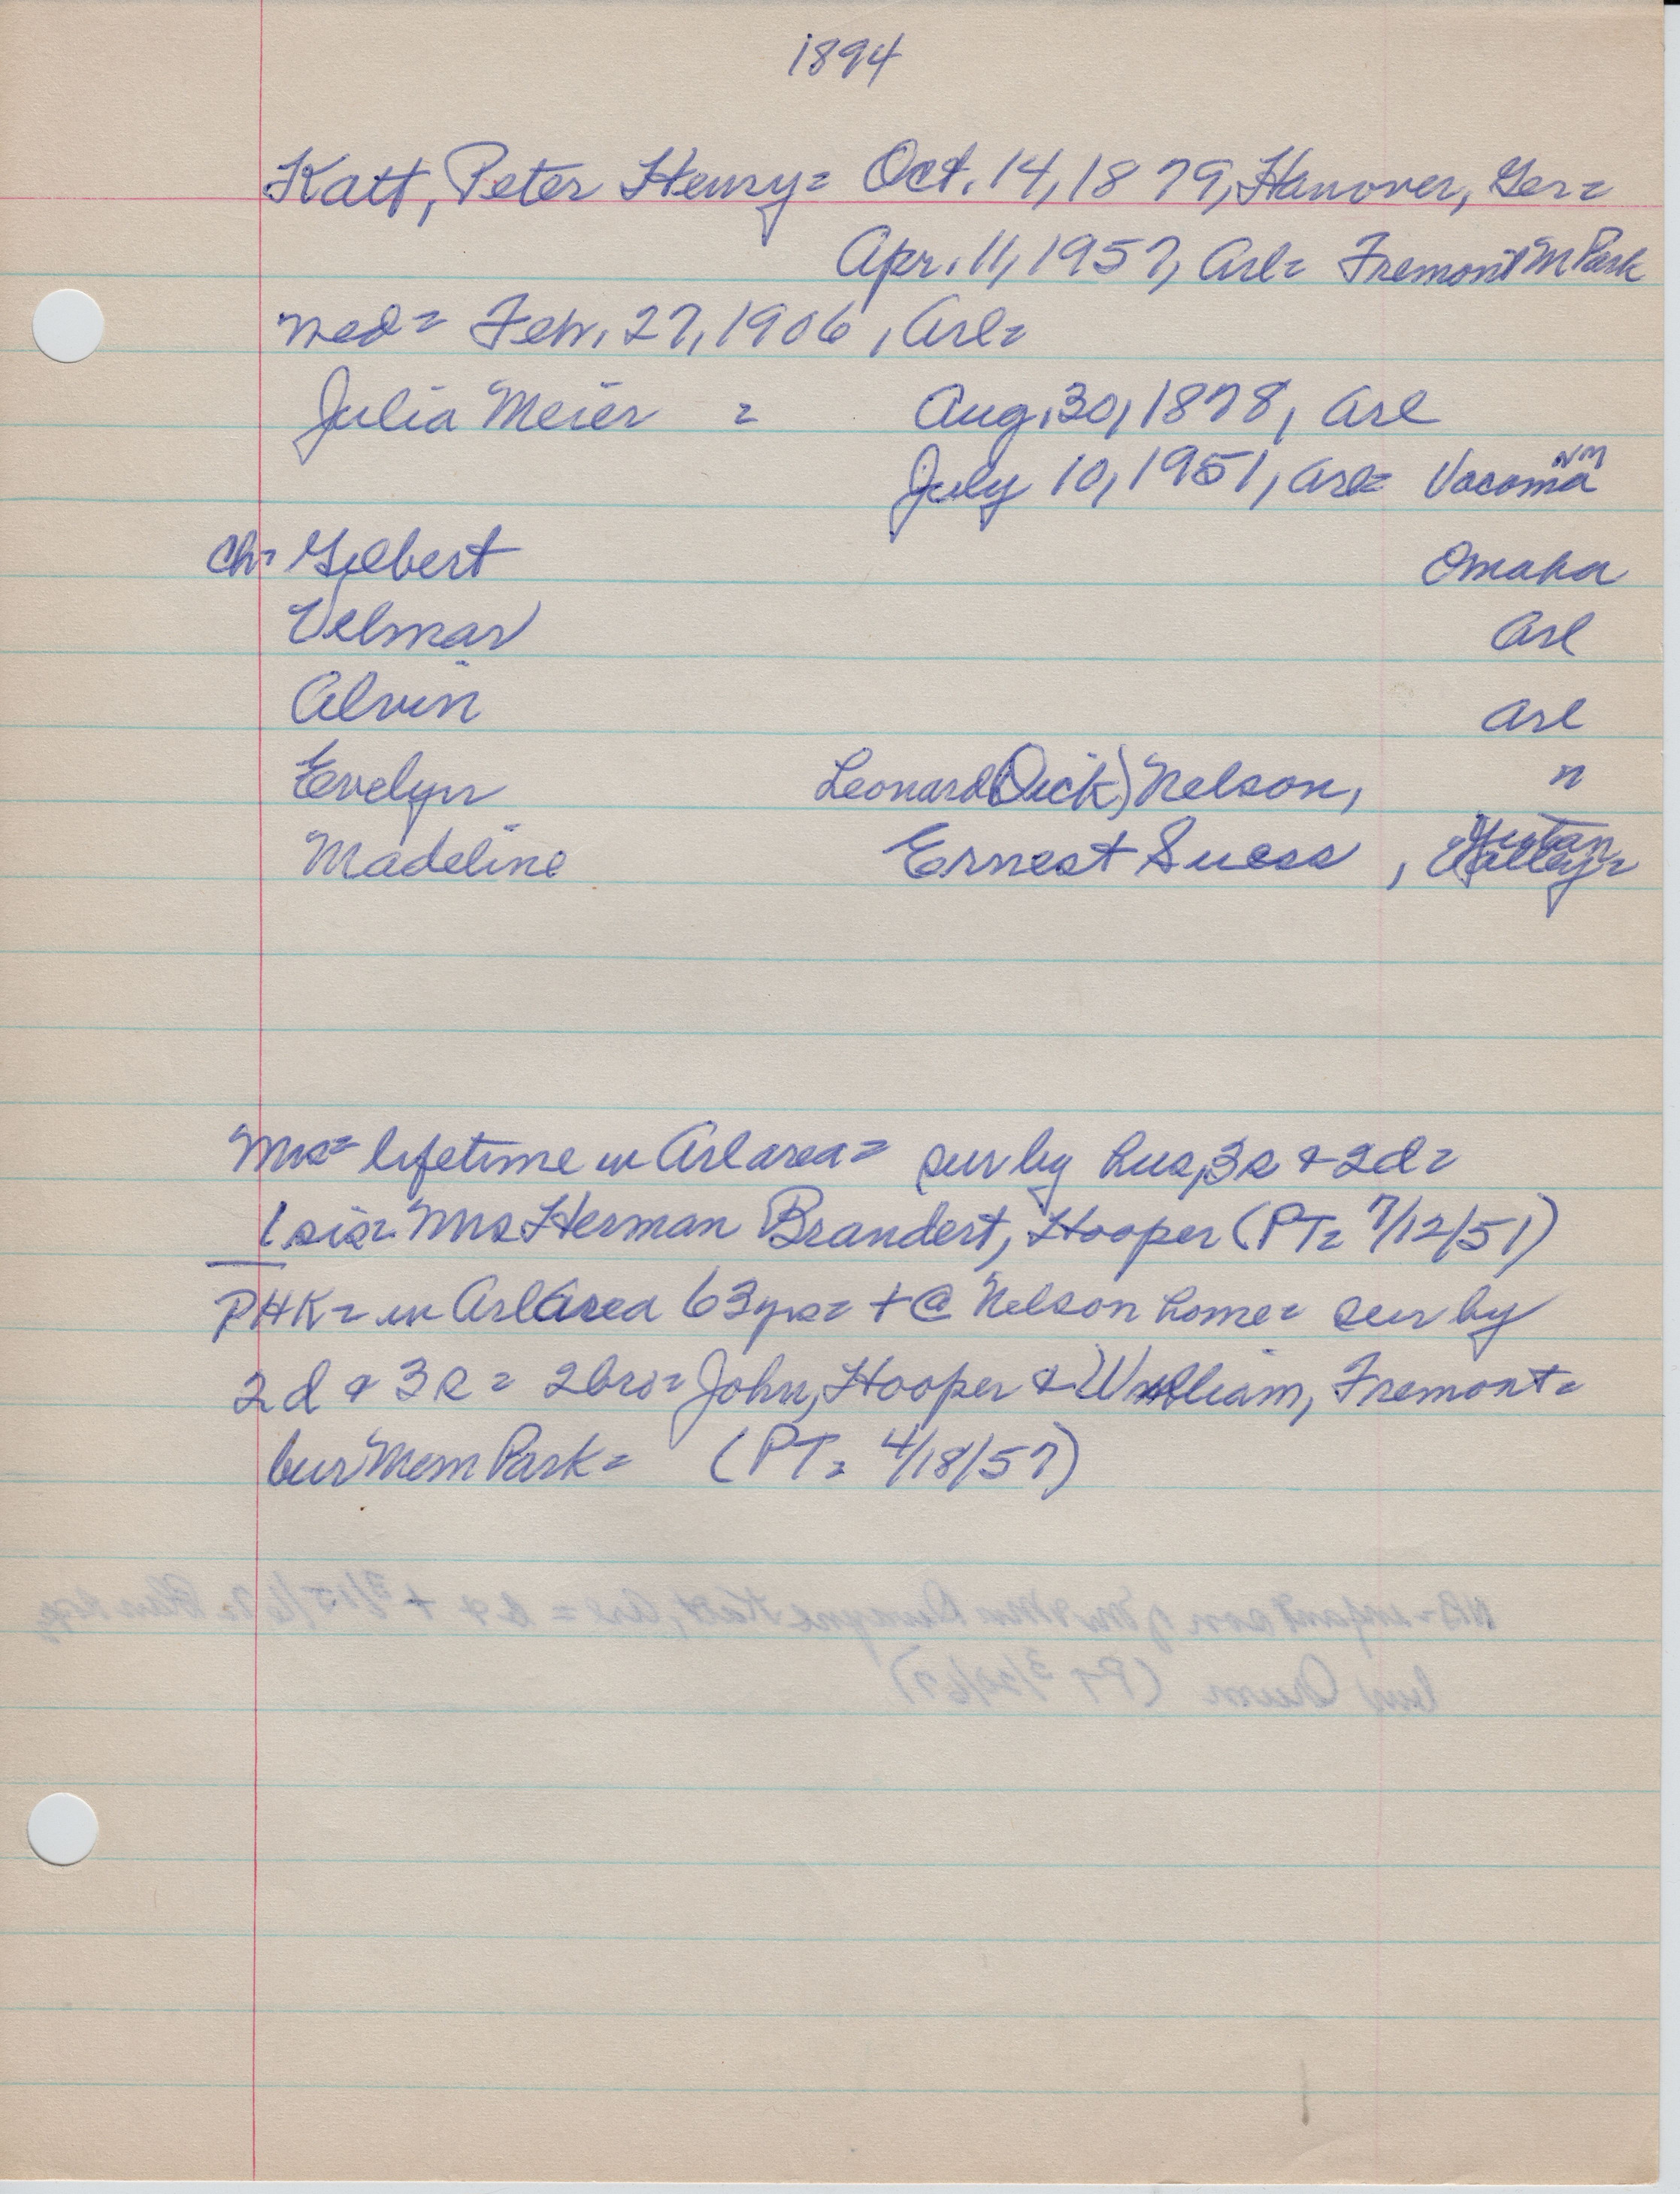 1894
Katt, Peter Henry= Oct. 14, 1879, Hanover, Ger=
Apr. 11, 1957, Arl= Fremont M Park
med= Feb. 27, 1906, Arl=
Julia Meier = Aug. 30, 1878, Arl
NM
July 10, 1951, Arl= Vacoma
Ch= Gilbert Omaha
Velmar Arl
Alvin Arl
Evelyn Leonard (Dick) Nelson, "
Yutan
Madeline Ernest Suess , Valley=
Mrs= lifetime in Arl area= sur by hus, 3s + 2d=
1 sis= Mrs Herman Brandert, Hooper (PT= 7/12/51)
PHK= in Arl Area 63 yrs= + @ Nelson home= sur by
2d + 3s = 2 bro= John, Hooper & William, Fremont=
bur Mem Park= (PT= 4/18/57)
NB= infant son of Mr & Mrs Katt, Arl = b & +
bur (PT